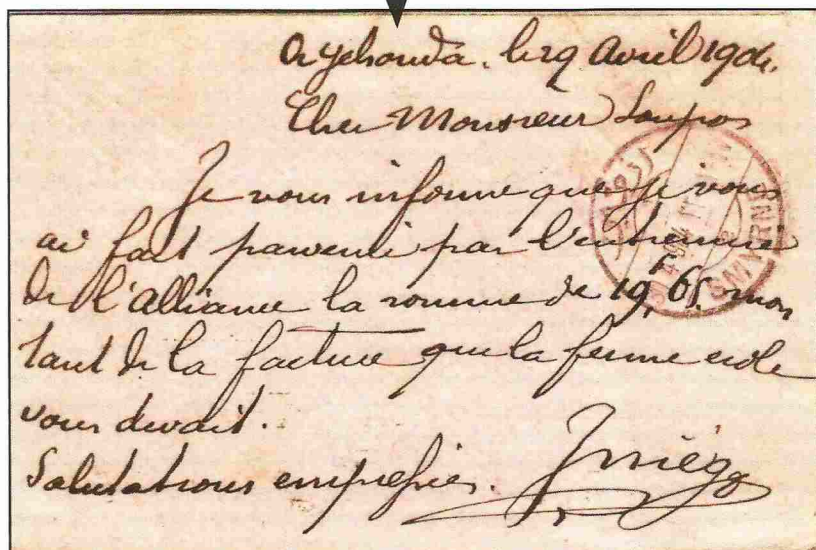 Or Yehouda, le 29 Avril 1904.
Cher Monsieur
Je vous informe que je vous
ai fait parvenir par l'entremise
de l'Alliance la somme de 19f,65, mon
tant de la facture que la ferme école
vous devait.
Salutations empressées.
SMYRNE